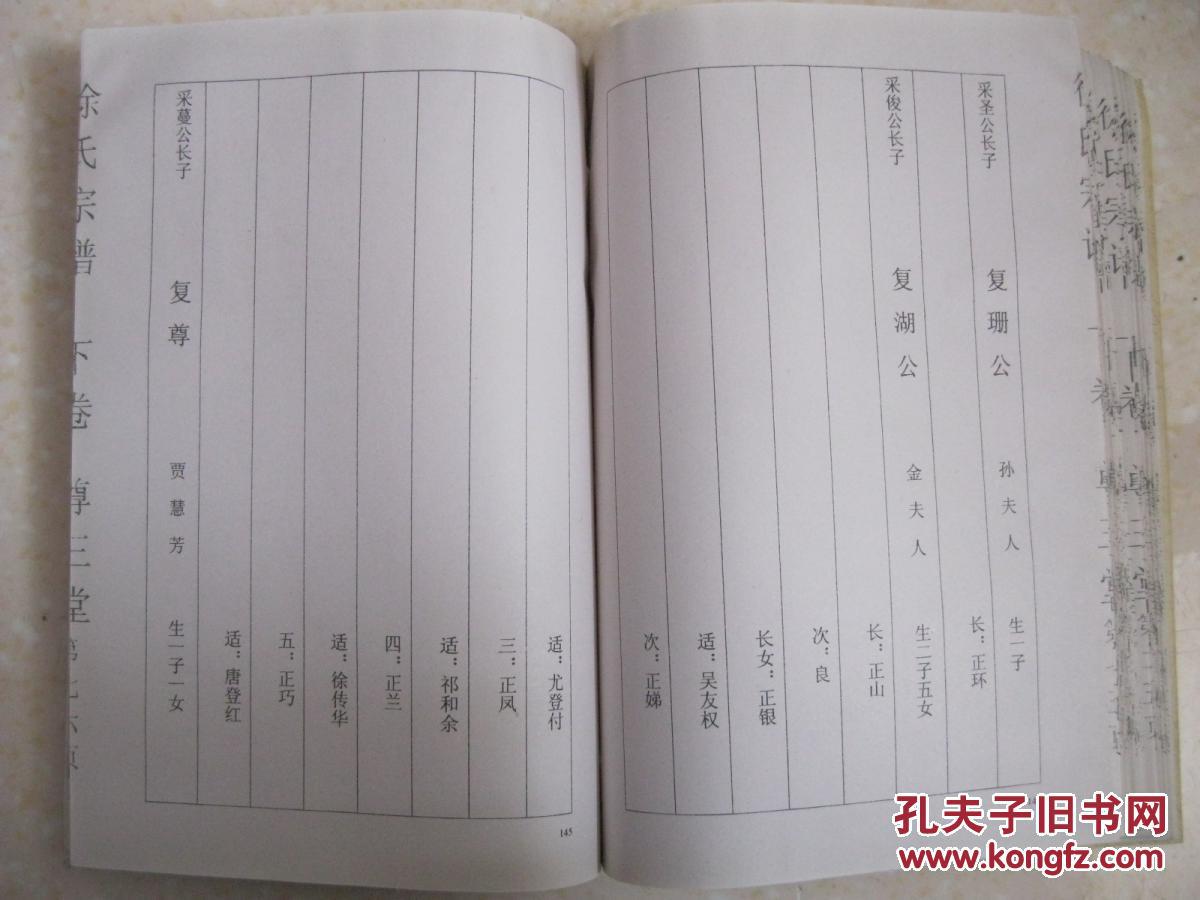 采圣公长子 复珊公 孙夫人 生一子
长：正环
采俊公长子 复湖公 金夫人 生二子五女
长：正山
次：良
长女：正银
适：吴友权
次：正娣
适：尤登付
三：正凤
适：祁和余
四：正兰
适：徐传华
五：正巧
适：唐登红
采蔓公长子 复尊 贾慧芳 生一子一女
氏宗谱 下卷 尊三堂
145
孔夫子旧书网
www.kongfz.com